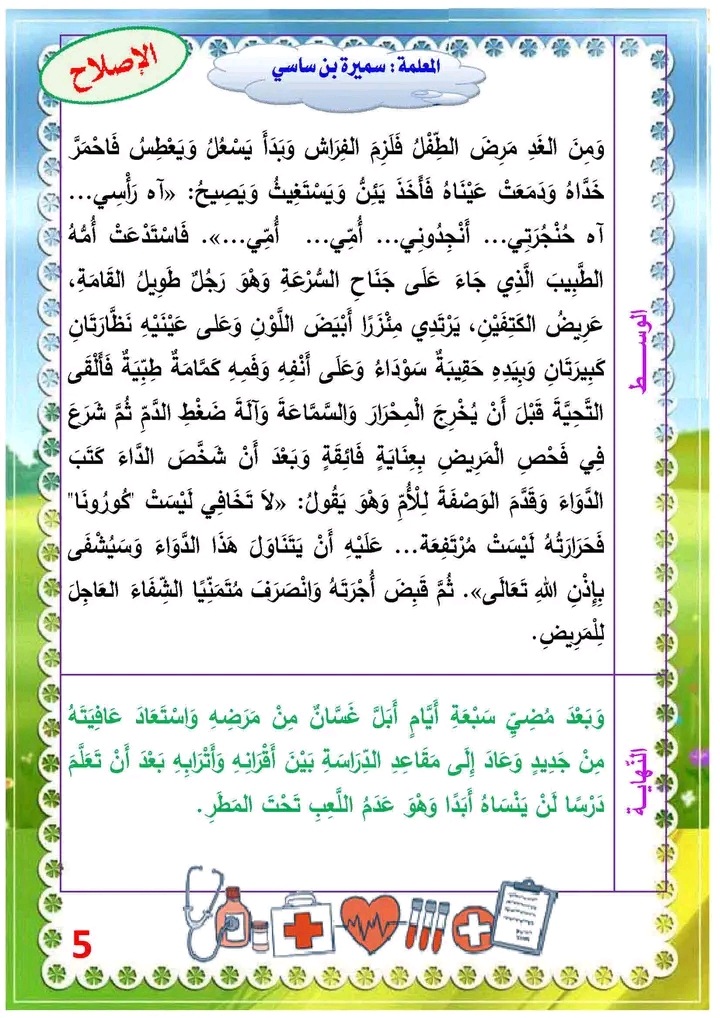 الإصلاح
المعلمة : سميرة بن ساسي
وَمِنَ الغَدِ مَرِضَ الطِّفْلُ فَلَزِمَ الفِرَاش وَبَدَأَ يَسْعُلُ وَيَعْطِسُ فَاحْمَرَّ
خَدَّاهُ وَدَمَعَتْ عَيْنَاهُ فَأَخَذَ يَئِنُّ وَيَسْتَغِيثُ وَيَصِيحُ: «آه رَأْسِي...
آه حُنْجُرَتِي... أَنْجِدُونِي... أُمِّي... أُمِّي...». فَاسْتَدْعَتْ أُمُّهُ
الطَّبِيبَ الَّذِي جَاءَ عَلَى جَنَاحِ السُّرْعَةِ وَهْوَ رَجُلٌ طَوِيلُ القَامَةِ،
عَرِيضُ الكَتِفَيْنِ، يَرْتَدِي مِئْزَرًا أَبْيَضَ اللَّوْنِ وَعَلى عَيْنَيْهِ نَظَّارَتَانِ
كَبِيرَتَانِ وَبِيَدِهِ حَقِيبَةٌ سَوْدَاءُ وَعَلَى أَنْفِهِ وَفَمِهِ كَمَّامَةٌ طِبِّيَةٌ فَأَلْقَى
التَّحِيَّةَ قَبْلَ أَنْ يُخْرِجَ الْمِحْرَارَ وَالسَّمَّاعَةَ وَآلَةَ ضَغْطِ الدَّمِّ ثُمَّ شَرَعَ
فِي فَحْصِ الْمَرِيضِ بِعِنَايَةٍ فَائِقَةٍ وَبَعْدَ أَنْ شَخَّصَ الدَّاءَ كَتَبَ
الدَّوَاءَ وَقَدَّمَ الوَصْفَةَ لِلْأُمِّ وَهْوَ يَقُولُ: «لاَ تَخَافِي لَيْسَتْ "كُورُونَا"
فَحَرَارَتُهُ لَيْسَتْ مُرْتَفِعَة... عَلَيْهِ أَنْ يَتَنَاوَلَ هَذَا الدَّوَاءَ وَسَيُشْفَى
بِإِذْنِ اللهِ تَعَالَى». ثُمَّ قَبِضَ أُجْرَتَهُ وَانْصَرَفَ مُتَمَنِّيًا الشِّفَاءَ العَاجِلَ
لِلْمَرِيضِ.
الوســـط
وَبَعْدَ مُضِيِّ سَبْعَةِ أَيَّامٍ أَبَلَّ غَسَّانٌ مِنْ مَرَضِهِ وَاسْتَعَادَ عَافِيَتَهُ
مِنْ جَدِيدٍ وَعَادَ إِلَى مَقَاعِدِ الدِّرَاسَةِ بَيْنَ أَقْرَانِهِ وَأَتْرَابِهِ بَعْدَ أَنْ تَعَلَّمَ
دَرْسًا لَنْ يَنْسَاهُ أَبَدًا وَهْوَ عَدَمُ اللَّعِبِ تَحْتَ المَطَرِ.
النّهايـة
5